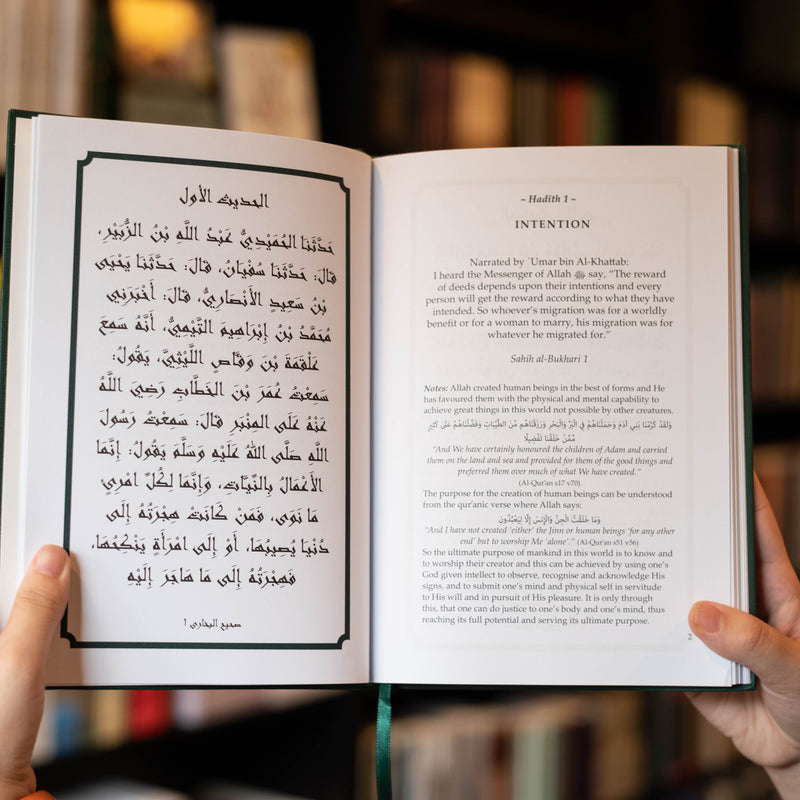 الحديث الأول
حَدَّثَنَا الحُمَيْدِيُّ عَبْدُ اللَّهِ بْنُ الزُّبَيْرِ،
قَالَ: حَدَّثَنَا سُفْيَانُ، قَالَ: حَدَّثَنَا يَحْيَى
بْنُ سَعِيدٍ الأَنْصَارِيُّ، قَالَ: أَخْبَرَنِي
مُحَمَّدُ بْنُ إِبْرَاهِيمَ التَّيْمِيُّ، أَنَّهُ سَمِعَ
عَلْقَمَةَ بْنَ وَقَّاصٍ اللَّيْثِيَّ، يَقُولُ:
سَمِعْتُ عُمَرَ بْنَ الخَطَّابِ رَضِيَ اللَّهُ
عَنْهُ عَلَى المِنْبَرِ قَالَ: سَمِعْتُ رَسُولَ
اللَّهِ صَلَّى اللهُ عَلَيْهِ وَسَلَّمَ يَقُولُ: إِنَّمَا
الأَعْمَالُ بِالنِّيَّاتِ، وَإِنَّمَا لِكُلِّ امْرِئٍ
مَا نَوَى، فَمَنْ كَانَتْ هِجْرَتُهُ إِلَى
دُنْيَا يُصِيبُهَا، أَوْ إِلَى امْرَأَةٍ يَنْكِحُهَا،
فَهِجْرَتُهُ إِلَى مَا هَاجَرَ إِلَيْهِ
صحيح البخاري 1
~ Hadīth 1 ~
INTENTION
Narrated by `Umar bin Al-Khattab:
I heard the Messenger of Allah ﷺ say, "The reward
of deeds depends upon their intentions and every
person will get the reward according to what they have
intended. So whoever's migration was for a worldly
benefit or for a woman to marry, his migration was for
whatever he migrated for."
Sahih al-Bukhari 1
Notes: Allah created human beings in the best of forms and He
has favoured them with the physical and mental capability to
achieve great things in this world not possible by other creatures.
وَلَقَدْ كَرَّمْنَا بَنِي آدَمَ وَحَمَلْنَاهُمْ فِي الْبَرِّ وَالْبَحْرِ وَرَزَقْنَاهُم مِّنَ الطَّيِّبَاتِ وَفَضَّلْنَاهُمْ عَلَىٰ كَثِيرٍ
مِّمَّنْ خَلَقْنَا تَفْضِيلًا
"And We have certainly honoured the children of Adam and carried
them on the land and sea and provided for them of the good things and
preferred them over much of what We have created."
(Al-Qur'an s17 v70)
The purpose for the creation of human beings can be understood
from the qur'anic verse where Allah says:
وَمَا خَلَقْتُ الْجِنَّ وَالْإِنسَ إِلَّا لِيَعْبُدُونِ
"And I have not created 'either' the Jinn or human beings 'for any other
end' but to worship Me 'alone'." (Al-Qur'an s51 v56)
So the ultimate purpose of mankind in this world is to know and
to worship their creator and this can be achieved by using one's
God given intellect to observe, recognise and acknowledge His
signs, and to submit one's mind and physical self in servitude
to His will and in pursuit of His pleasure. It is only through
this, that one can do justice to one's body and one's mind, thus
reaching its full potential and serving its ultimate purpose.
2